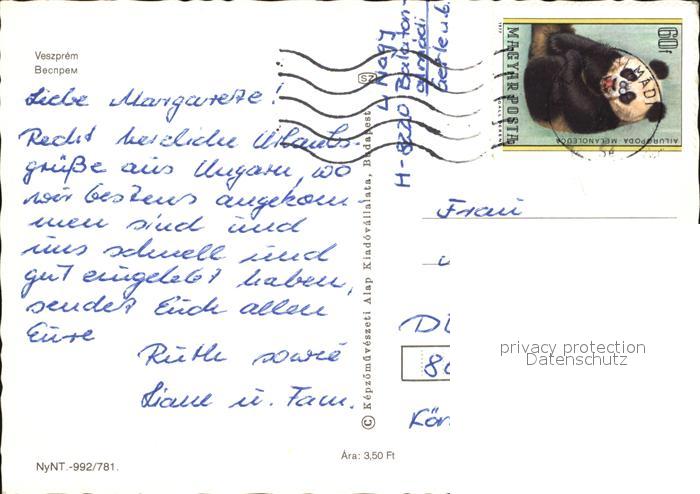 Veszprém
Веспрем
Liebe Margarete!
Recht herzliche Urlaubs-
grüße aus Ungarn, wo
wir bestens angekom-
men sind und
uns schnell und
gut eingelebt haben,
sendet Euch allen
Eure
Ruth sowie
Liane u. Fam.
NyNT.-992/781.
Ára: 3,50 Ft
© Képzőművészeti Alap Kiadóvállalata, Budapest
SZ
Nagy
H-8220 Balaton-
almádi
60f
MAGYAR POSTA
AILUROPODA MELANOLEUCA
1977
MÁDI
Frau
DD
80
Kön
privacy protection
Datenschutz